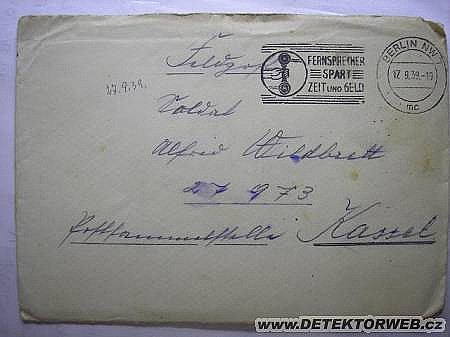 Feldpost
FERNSPRECHER
SPART
ZEIT UND GELD
BERLIN NW
17.9.39.-19
mc
27.9.39.
Soldat
Alfred Wildbrett
27 973
Postsammelstelle Kassel
www.DETEKTORWEB.cz